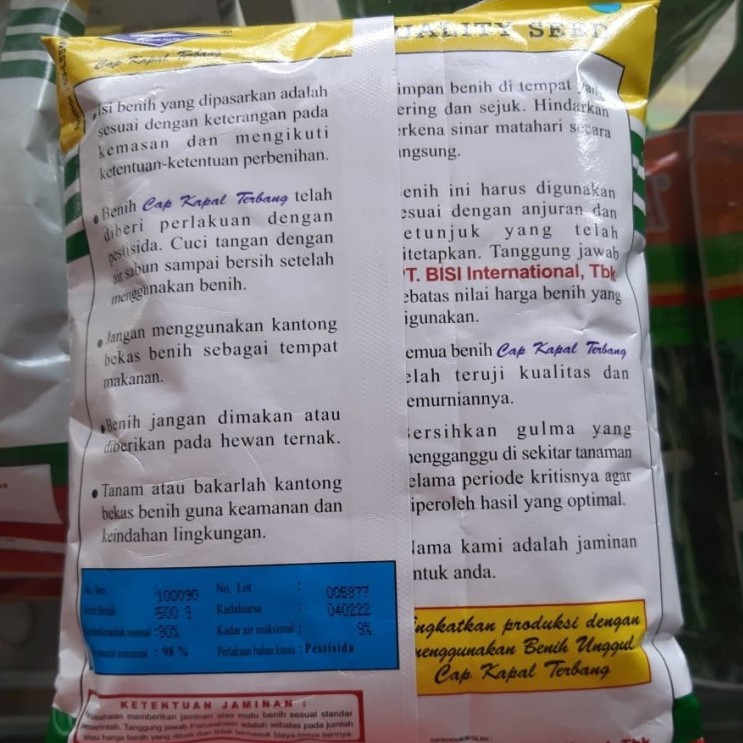 Cap Kapal Terbang
Isi benih yang dipasarkan adalah
sesuai dengan keterangan pada
kemasan dan mengikuti
ketentuan-ketentuan perbenihan.
Benih Cap Kapal Terbang telah
diberi perlakuan dengan
pestisida. Cuci tangan dengan
air sabun sampai bersih setelah
menggunakan benih.
Jangan menggunakan kantong
bekas benih sebagai tempat
makanan.
Benih jangan dimakan atau
diberikan pada hewan ternak.
Tanam atau bakarlah kantong
bekas benih guna keamanan dan
keindahan lingkungan.
100090 No. Lot : 005877
500 g Kadaluarsa : 040222
:90% Kadar air maksimal : 9%
: 98 % Perlakuan bahan kimia : Pestisida
KETENTUAN JAMINAN :
memberikan jaminan atas mutu benih sesuai standar
pemerintah. Tanggung jawab Perusahaan adalah sebatas pada jumlah
UALITY SEED
impan benih di tempat yang
ering dan sejuk. Hindarkan
erkena sinar matahari secara
angsung.
enih ini harus digunakan
esuai dengan anjuran dan
etunjuk yang telah
itetapkan. Tanggung jawab
PT. BISI International, Tbk
ebatas nilai harga benih yang
igunakan.
emua benih Cap Kapal Terbang
elah teruji kualitas dan
emurniannya.
ersihkan gulma yang
engganggu di sekitar tanaman
elama periode kritisnya agar
iperoleh hasil yang optimal.
ama kami adalah jaminan
ntuk anda.
ingkatkan produksi dengan
menggunakan Benih Unggul
Cap Kapal Terbang